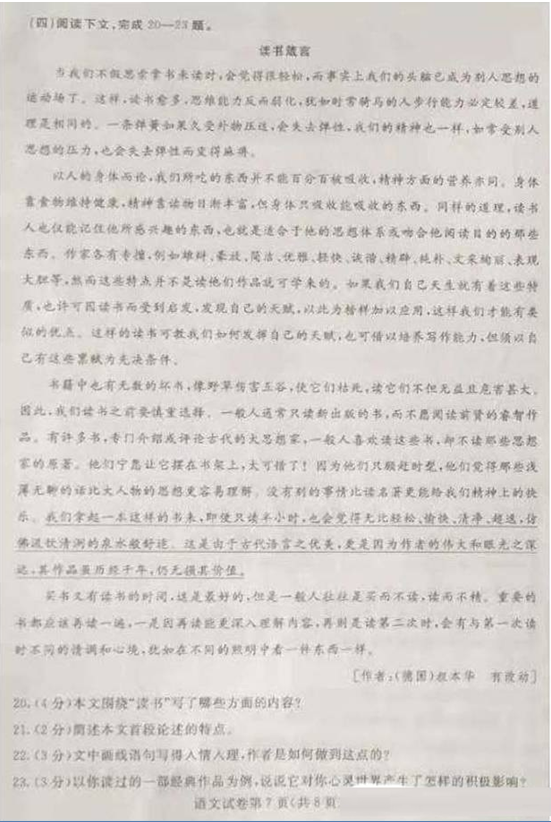 (四)阅读下文,完成20—23题。
读书箴言
当我们不假思索拿书来读时,会觉得很轻松,而事实上我们的头脑已成为别人思想的
运动场了。这样,读书愈多,思维能力反而弱化,犹如时常骑马的人步行能力必定较差,道
理是相同的。一条弹簧如果久受外物压迫,会失去弹性,我们的精神也一样,如常受别人
思想的压力,也会失去弹性而变得麻痹。
以人的身体而论,我们所吃的东西并不能百分百被吸收,精神方面的营养亦同。身体
靠食物维持健康,精神靠读物日渐丰富,但身体只吸收能吸收的东西。同样的道理,读书
人也仅能记住他所感兴趣的东西,也就是适合于他的思想体系或吻合他阅读目的的那些
东西。作家各有专擅,例如雄辩、豪放、简洁、优雅、轻快、诙谐、精辟、纯朴、文采绚丽、表现
大胆等,然而这些特点并不是读他们作品就可学来的。如果我们自己天生就有着这些特
质,也许可因读书而受到启发,发现自己的天赋,以此为楷样加以应用,这样我们才能有类
似的优点。这样的读书可教我们如何发挥自己的天赋,也可借以培养写作能力,但须以自
己有这些禀赋为先决条件。
书籍中也有无数的坏书,像野草伤害五谷,使它们枯死,读它们不但无益且危害甚大。
因此,我们读书之前要慎重选择。一般人通常只读新出版的书,而不愿阅读前贤的睿智作
品。有许多书,专门介绍或评论古代的大思想家,一般人喜欢读这些书,却不读那些思想
家的原著。他们宁愿让它摆在书架上,太可惜了!因为他们只顾赶时髦,他们觉得那些浅
薄无聊的话比大人物的思想更容易理解。没有别的事情比读名著更能给我们精神上的快
乐。我们拿起一本这样的书来,即使只读半小时,也会觉得无比轻松、愉快、清净、超逸,仿
佛汲饮清冽的泉水般舒适。这是由于古代语言之优美,更是因为作者的伟大和眼光之深
远,其作品虽历经千年,仍无损其价值。
买书又有读书的时间,这是最好的,但是一般人往往是买而不读,读而不精。重要的
书都应该再读一遍,一是因再读能更深入理解内容,再则是读第二次时,会有与第一次读
时不同的情调和心境,犹如在不同的照明中看一件东西一样。
[作者:(德国)叔本华 有改动]
20.(4分)本文围绕“读书”写了哪些方面的内容?
21.(2分)简述本文首段论述的特点。
22.(3分)文中画线语句写得入情入理,作者是如何做到这点的?
23.(3分)以你读过的一部经典作品为例,说说它对你心灵世界产生了怎样的积极影响?
语文试卷第7页(共8页